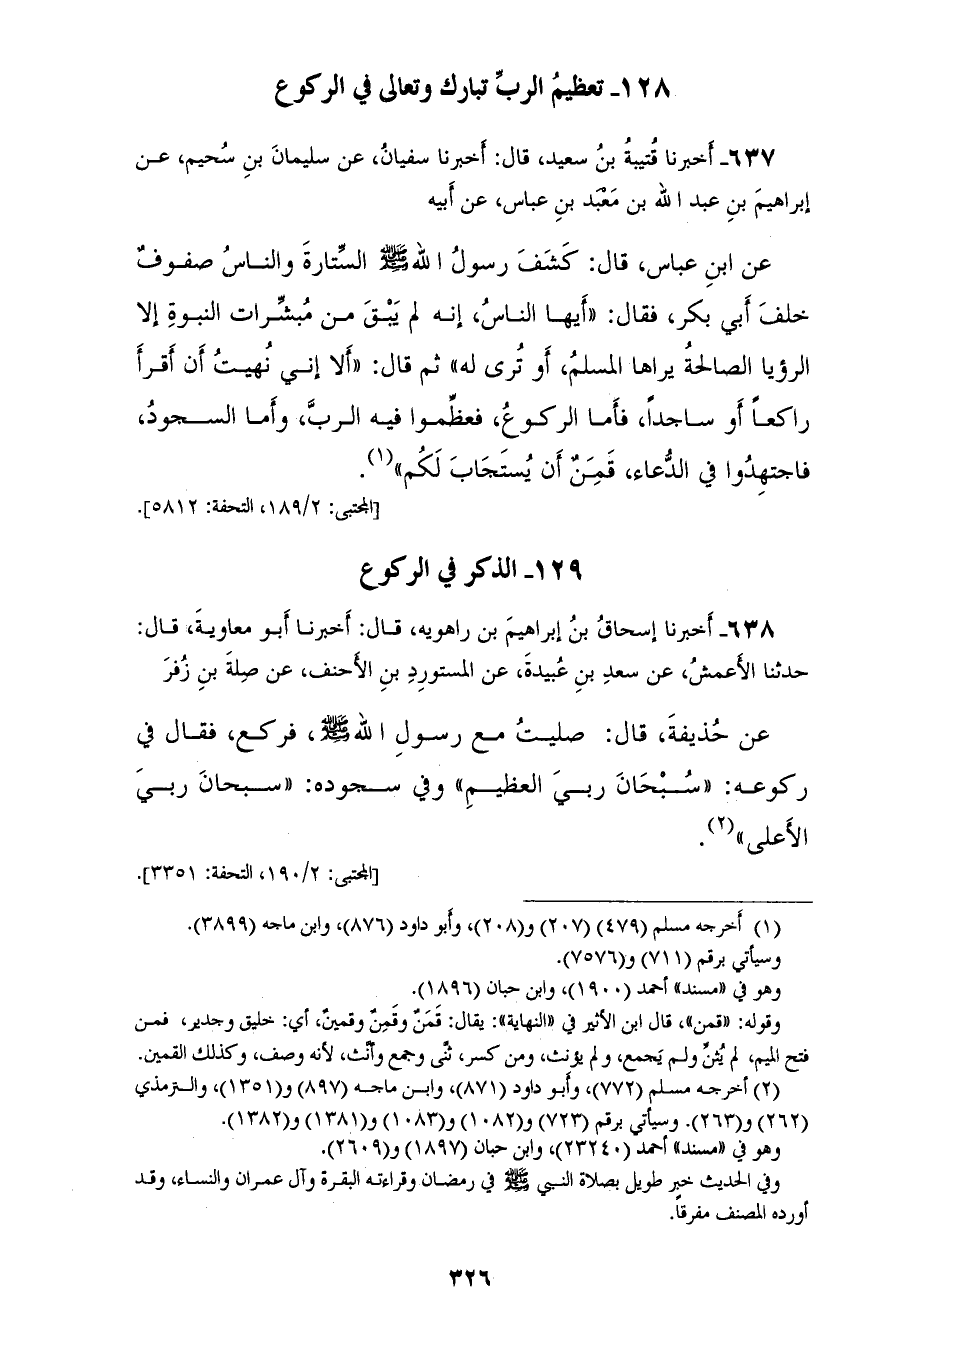 ١٢٨ـ تعظيمُ الربِّ تبارك وتعالى في الركوع
٦٣٧ـ أَخبرنا قُتيبةُ بنُ سعيد، قال: أَخبرنا سفيانُ، عن سليمانَ بنِ سُحيم، عـن
إبراهيمَ بنِ عبد الله بن مَعْبَد بنِ عباس، عن أَبيه
عن ابنِ عباس، قال: كَشَفَ رسولُ اللهِ ﷺ السِّتارةَ والناسُ صفوفٌ
خلفَ أَبي بكر، فقال: «أَيهـا الناسُ، إنـه لم يَبْـقَ مـن مُبشِّرات النبوةِ إلا
الرؤيا الصالحةُ يراها المسلمُ، أَو تُرى له» ثم قال: «أَلا إنـي نُهيـتُ أَن أَقـرأَ
راكعـاً أَو سـاجداً، فأَمـا الركـوعُ، فعظِّمـوا فيـه الـربَّ، وأَمـا السـجودُ،
فاجتهِدُوا في الدُّعاء، قَمِنٌ أَن يُستَجَابَ لَكُم»(١).
[المجتبى: ١٨٩/٢، التحفة: ٥٨١٢].
١٢٩ـ الذكر في الركوع
٦٣٨ـ أَخبرنا إسحاقُ بنُ إبراهيمَ بن راهويه، قـال: أَخبرنـا أَبـو معاويـةَ، قـال:
حدثنا الأَعمشُ، عن سعدِ بنِ عُبيدةَ، عن المستوردِ بنِ الأَحنف، عن صِلةَ بنِ زُفَرَ
عن حُذيفةَ، قال: صليـتُ مـع رسـولِ اللهِ ﷺ، فركـع، فقـال في
ركوعـه: «سُـبْحَانَ ربـيَ العظيـمِ» وفي سـجوده: «سـبحانَ ربـيَ
الأَعلى»(٢).
[المجتبى: ١٩٠/٢، التحفة: ٣٣٥١].
(١) أَخرجه مسلم (٤٧٩) (٢٠٧) و(٢٠٨)، وأَبو داود (٨٧٦)، وابن ماجه (٣٨٩٩).
وسيأتي برقم (٧١١) و(٧٥٧٦).
وهو في «مسند» أحمد (١٩٠٠)، وابن حبان (١٨٩٦).
وقوله: «قمن»، قال ابن الأثير في «النهاية»: يقال: قَمَنٌ وقَمِنٌ وقمينٌ، أي: خليق وجدير، فمـن
فتح الميم، لم يُثنِّ ولـم يَجمع، ولم يؤنث، ومن كسر، ثنَّى وجمع وأنَّث، لأنه وصف، وكذلك القمين.
(٢) أخرجـه مسـلم (٧٧٢)، وأَبـو داود (٨٧١)، وابـن ماجـه (٨٩٧) و(١٣٥١)، والـترمذي
(٢٦٢) و(٢٦٣). وسيأتي برقم (٧٢٣) و(١٠٨٢) و(١٠٨٣) و(١٣٨١) و(١٣٨٢).
وهو في «مسند» أحمد (٢٣٢٤٠)، وابن حبان (١٨٩٧) و(٢٦٠٩).
وفي الحديث خبر طويل بصلاة النبي ﷺ في رمضان وقراءته البقرة وآل عمران والنساء، وقـد
أورده المصنف مفرقاً.
٣٢٦